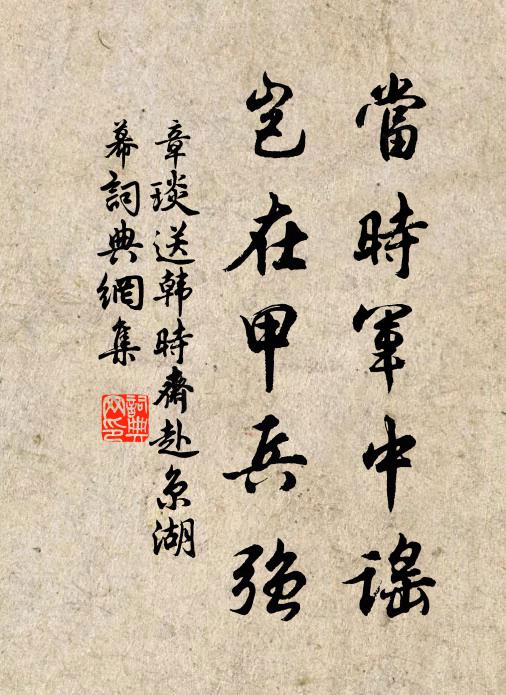 當時軍中謠
豈在甲兵强
章琰送韩時齋赴京湖
幕詞典網集
詞典網印